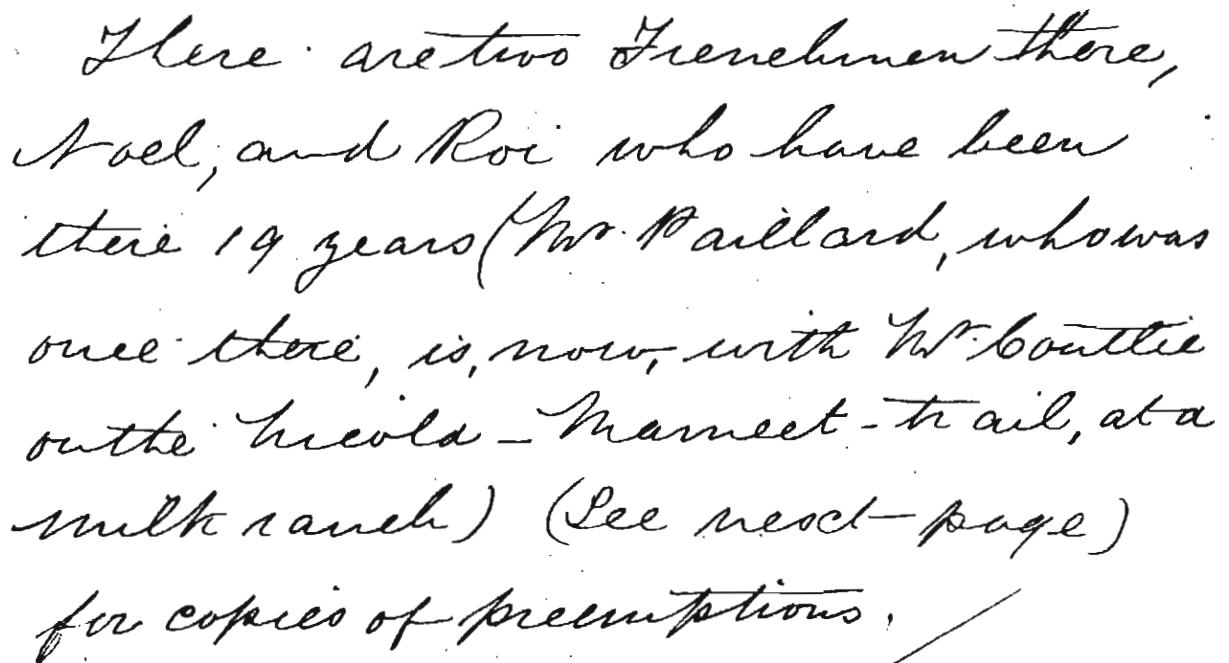 There are two Frenchmen there,
Noel, and Roi who have been
there 19 years (Mr. Paillard, who was
once there, is, now, with Mr. Couttie
on the Nicola - Mameet - trail, at a
milk ranch) (See next page)
for copies of preemptions.